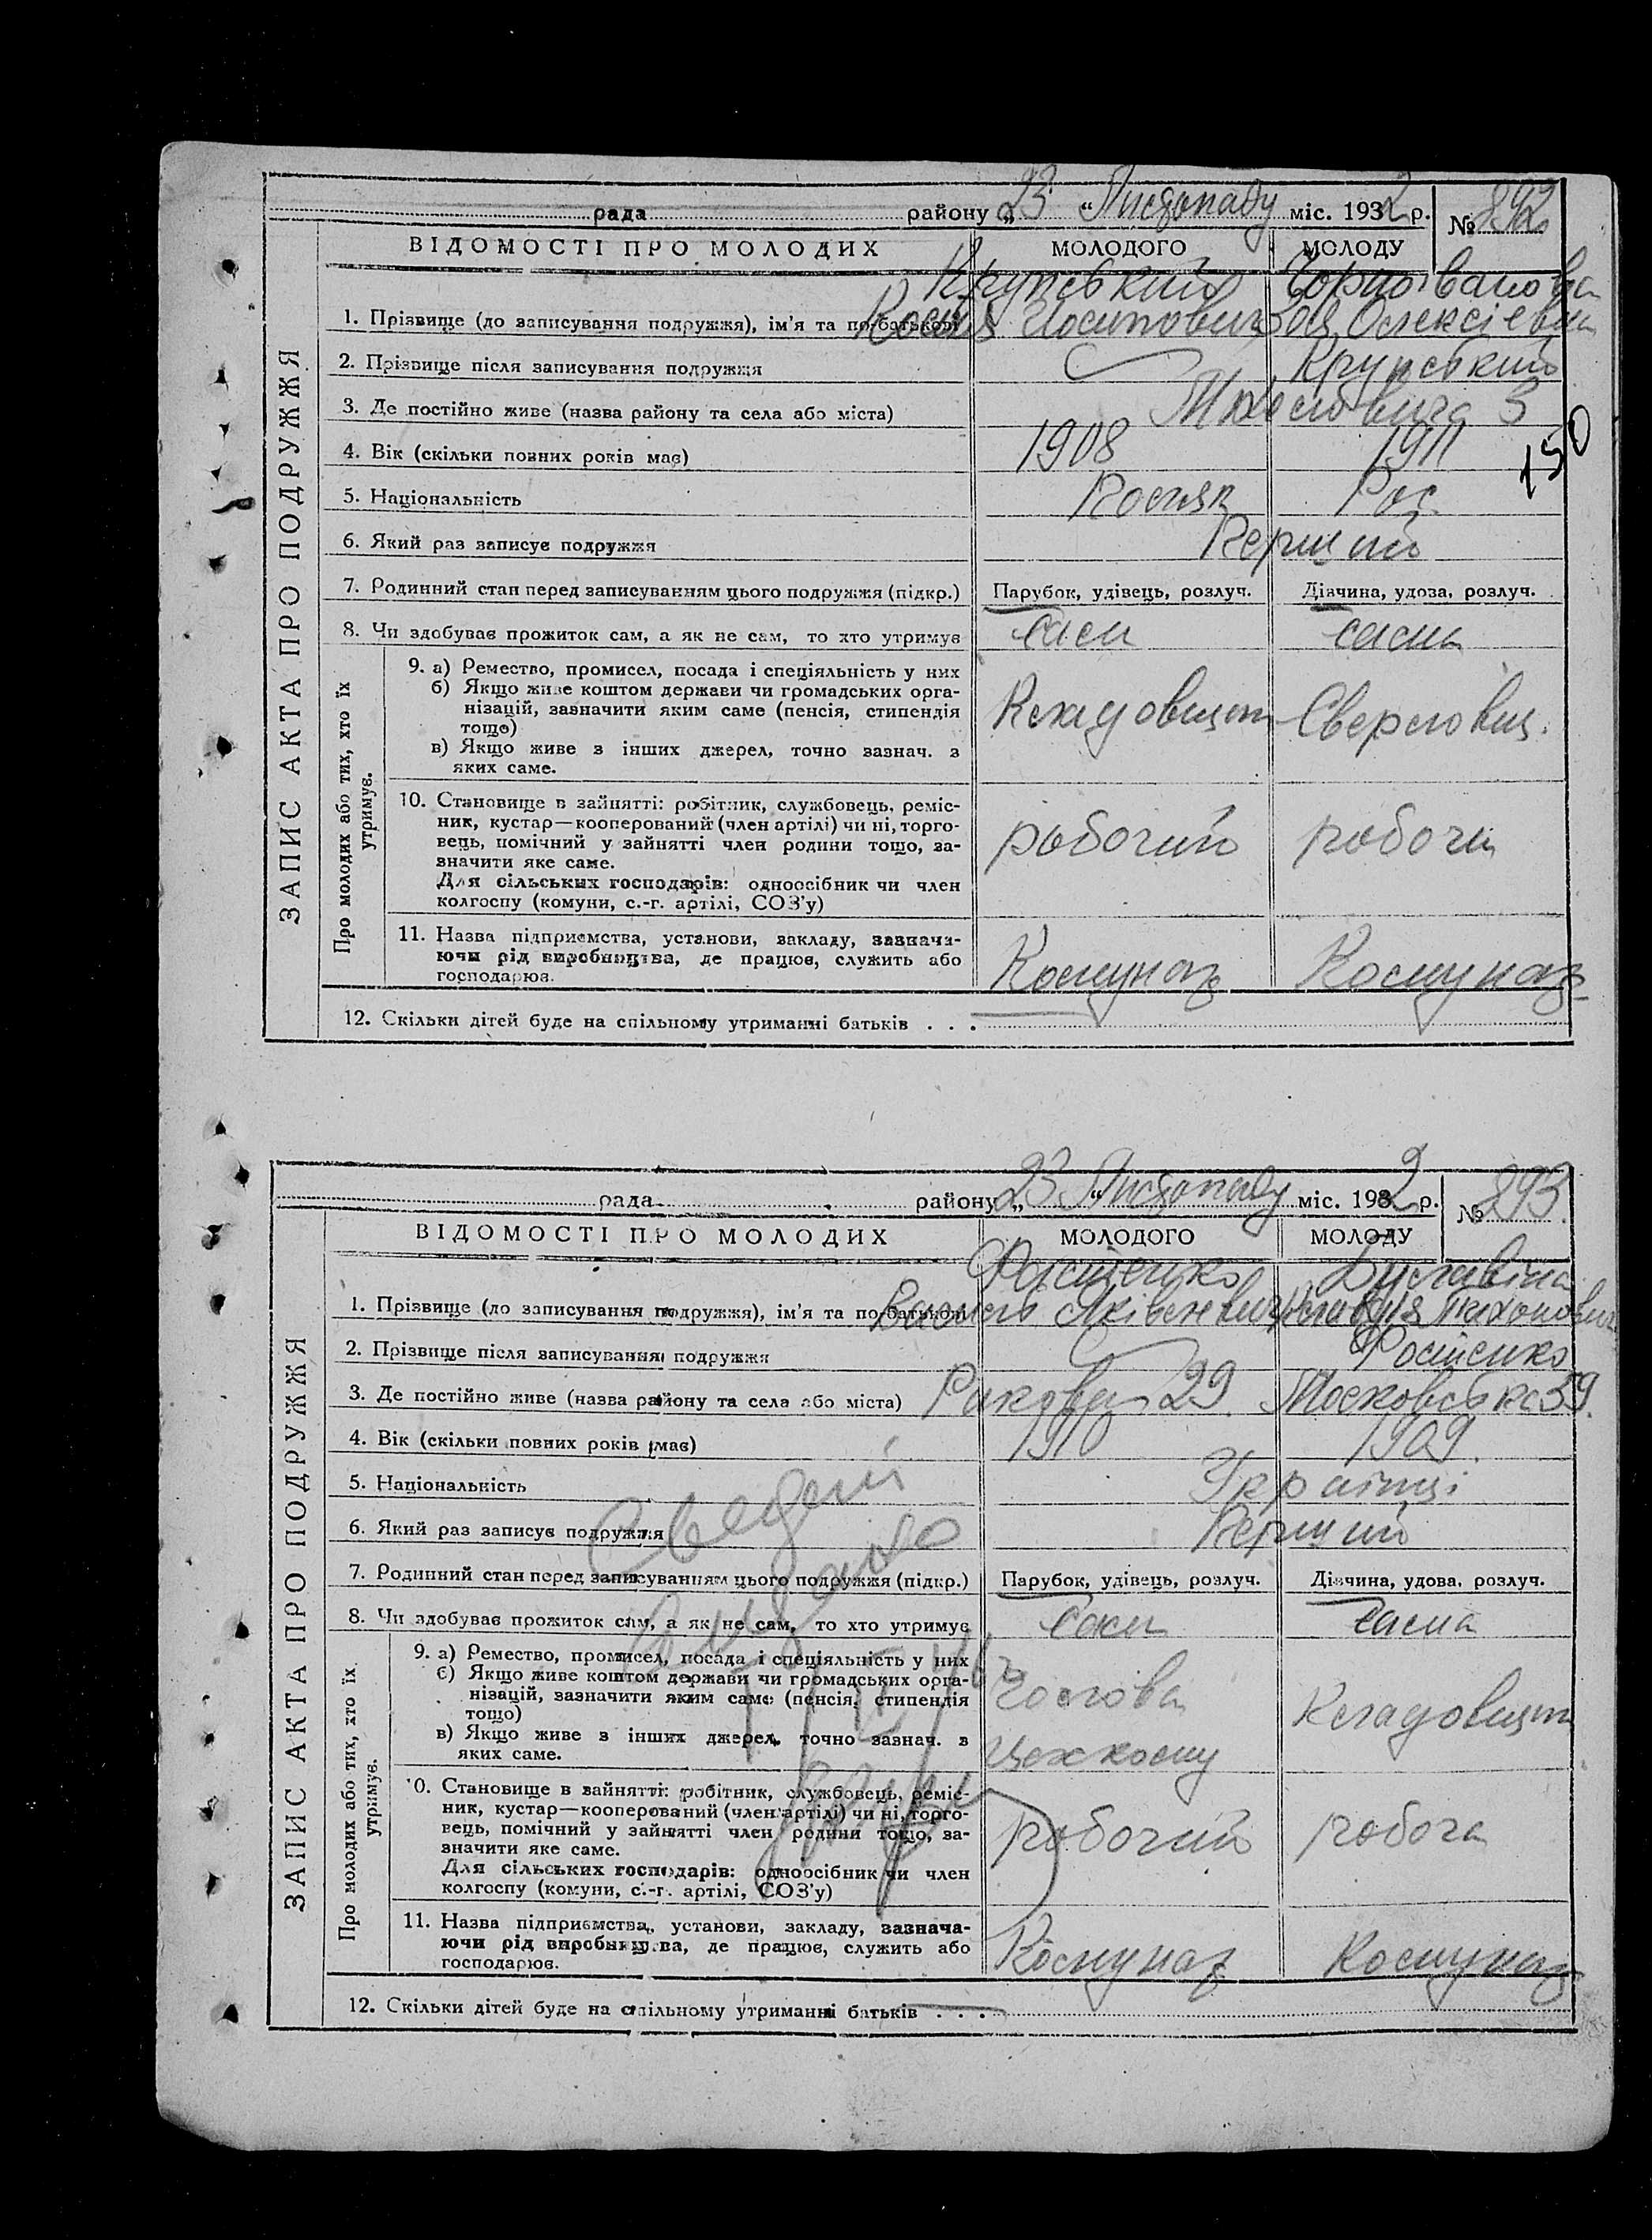 рада району „23 “ Листопаду міс. 1932 р. № 892
ВІДОМОСТІ ПРО МОЛОДИХ МОЛОДОГО МОЛОДУ
ЗАПИС АКТА ПРО ПОДРУЖЖЯ
Крупський
1. Прізвище (до записування подружжя), ім'я та по-батькові Йосипович Зоя Олексієвна
2. Прізвище після записування подружжя Крупський
3. Де постійно живе (назва району та села або міста) 3
4. Вік (скільки повних років має) 1908 1911
150
5. Національність Росіян Рос.
6. Який раз записує подружжя Перший
7. Родинний стан перед записуванням цього подружжя (підкр.) Парубок, удівець, розлуч. Дівчина, удова, розлуч.
8. Чи здобуває прожиток сам, а як не сам, то хто утримує сам сама
Про молодих або тих, хто їх утримує.
9. а) Ремество, промисел, посада і спеціяльність у них
б) Якщо живе коштом держави чи громадських орга-
нізацій, зазначити яким саме (пенсія, стипендія Кладовщик Сверловщ.
тощо)
в) Якщо живе з інших джерел, точно зазнач. з
яких саме.
10. Становище в зайнятті: робітник, службовець, реміс-
ник, кустар—кооперований (член артілі) чи ні, торго-
вець, помічний у зайнятті член родини тощо, за- робочий робоча
значити яке саме.
Для сільських господарів: одноосібник чи член
колгоспу (комуни, с.-г. артілі, СОЗ'у)
11. Назва підприємства, установи, закладу, зазнача-
ючи рід виробництва, де працює, служить або Комунар Комунар
господарює.
12. Скільки дітей буде на спільному утриманні батьків . . .
рада району „23 “ Листопаду міс. 1932 р. № 893.
ВІДОМОСТІ ПРО МОЛОДИХ МОЛОДОГО МОЛОДУ
ЗАПИС АКТА ПРО ПОДРУЖЖЯ
Фастенко
1. Прізвище (до записування подружжя), ім'я та по-батькові Василь Яківлевич
2. Прізвище після записування подружжя
3. Де постійно живе (назва району та села або міста) 29. Московська 59.
4. Вік (скільки повних років має) 1910 1909.
5. Національність Українці
6. Який раз записує подружжя Перший
7. Родинний стан перед записуванням цього подружжя (підкр.) Парубок, удівець, розлуч. Дівчина, удова, розлуч.
8. Чи здобуває прожиток сам, а як не сам, то хто утримує сам сама
Про молодих або тих, хто їх утримує.
9. а) Ремество, промисел, посада і спеціяльність у них
б) Якщо живе коштом держави чи громадських орга-
нізацій, зазначити яким саме (пенсія, стипендія Голова Кладовщик
тощо)
в) Якщо живе з інших джерел, точно зазнач. з цехкому
яких саме.
10. Становище в зайнятті: робітник, службовець, реміс-
ник, кустар—кооперований (член артілі) чи ні, торго-
вець, помічний у зайнятті член родини тощо, за- робочий робоча
значити яке саме.
Для сільських господарів: одноосібник чи член
колгоспу (комуни, с.-г. артілі, СОЗ'у)
11. Назва підприємства, установи, закладу, зазнача-
ючи рід виробництва, де працює, служить або Комунар Комунар
господарює.
12. Скільки дітей буде на спільному утриманні батьків . . .